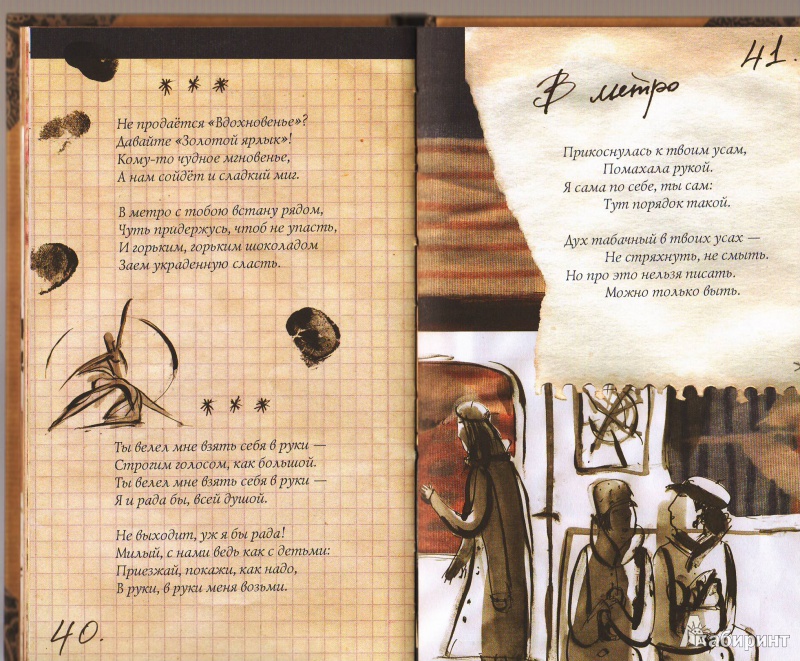 * * *
Не продаётся «Вдохновенье»?
Давайте «Золотой ярлык»!
Кому-то чудное мгновенье,
А нам сойдёт и сладкий миг.
В метро с тобою встану рядом,
Чуть придержусь, чтоб не упасть,
И горьким, горьким шоколадом
Заем украденную сласть.
* * *
Ты велел мне взять себя в руки —
Строгим голосом, как большой.
Ты велел мне взять себя в руки —
Я и рада бы, всей душой.
Не выходит, уж я бы рада!
Милый, с нами ведь как с детьми:
Приезжай, покажи, как надо,
В руки, в руки меня возьми.
40.
41.
В метро
Прикоснулась к твоим усам,
Помахала рукой.
Я сама по себе, ты сам:
Тут порядок такой.
Дух табачный в твоих усах —
Не стряхнуть, не смыть.
Но про это нельзя писать.
Можно только выть.
Лабиринт